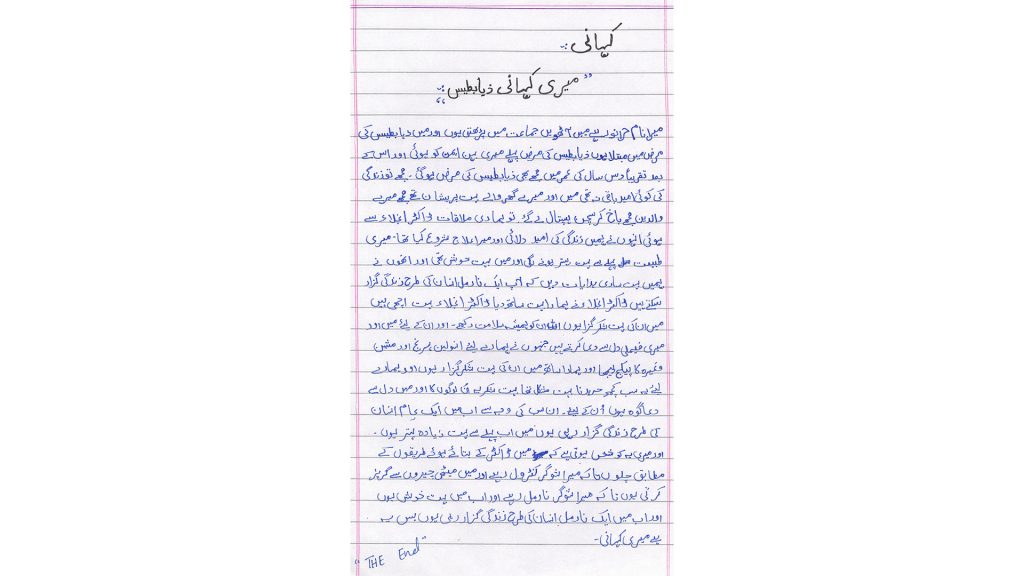 کہانی :۔
"میری کہانی ذیابطیس :۔"
میرا نام حرا نور ہے میں 8 ویں جماعت میں پڑھتی ہوں اور میں ذیابطیس کی
مرض میں مبتلا ہوں ذیابطیس کی مرض پہلے میری بہن ایمن کو ہوئی اور اس کے
بعد تقریباً دس سال کی عمر میں مجھے بھی ذیابطیس کی مرض ہوگئی۔ مجھے تو زندگی
کی کوئی امید باقی نہ تھی میں اور میرے گھر والے بہت پریشان تھے مجھے میرے
والدین مجھے باخ کرسچن ہسپتال لے گئے تو ہماری ملاقات ڈاکٹر اعلاء سے
ہوئی انہوں نے ہمیں زندگی کی امید دلائی اور میرا علاج شروع کیا تھا۔ میری
طبیعت پہلے سے بہت بہتر ہونے لگی اور میں بہت خوش تھی اور انھوں نے
ہمیں بہت ساری ہدایات دیں کہ آپ ایک نارمل انسان کی طرح زندگی گزار
سکتے ہیں ڈاکٹر اعلاء نے ہمارا بہت ساتھ دیا ڈاکٹر اعلاء بہت اچھی ہیں
میں ان کی بہت شکر گزار ہوں اللہ ان کو ہمیشہ سلامت رکھے۔ اور ان کے لئے میں اور
میری فیملی دل سے دعا کرتے ہیں جنہوں نے ہمارے لیئے انسولین سرنج اور مشین
وغیرہ کا پیکج بھیجا اور ہمارا ساتھ میں ان کی بہت شکر گزار ہوں اور ہمارے
لیئے یہ سب کچھ خریدنا بہت مشکل تھا بہت شکریہ ان لوگوں کا اور میں دل سے
دعا گوہ ہوں اُن کے لیئے۔ ان سب کی وجہ سے اب میں ایک عام انسان
کی طرح زندگی گزار رہی ہوں میں اب پہلے سے بہت زیادہ بہتر ہوں۔
اور میری یہ کوشش ہوتی ہے کہ میں ڈاکٹر کے بتائے ہوئے طریقوں کے
مطابق چلوں تاکہ میرا شوگر کنٹرول رہے اور میں میٹھی چیزوں سے گریز
کرتی ہوں تاکہ میرا شوگر نارمل رہے اور اب میں بہت خوش ہوں
اور اب میں ایک نارمل انسان کی طرح زندگی گزار رہی ہوں بس یہ
ہے میری کہانی۔
"THE End"